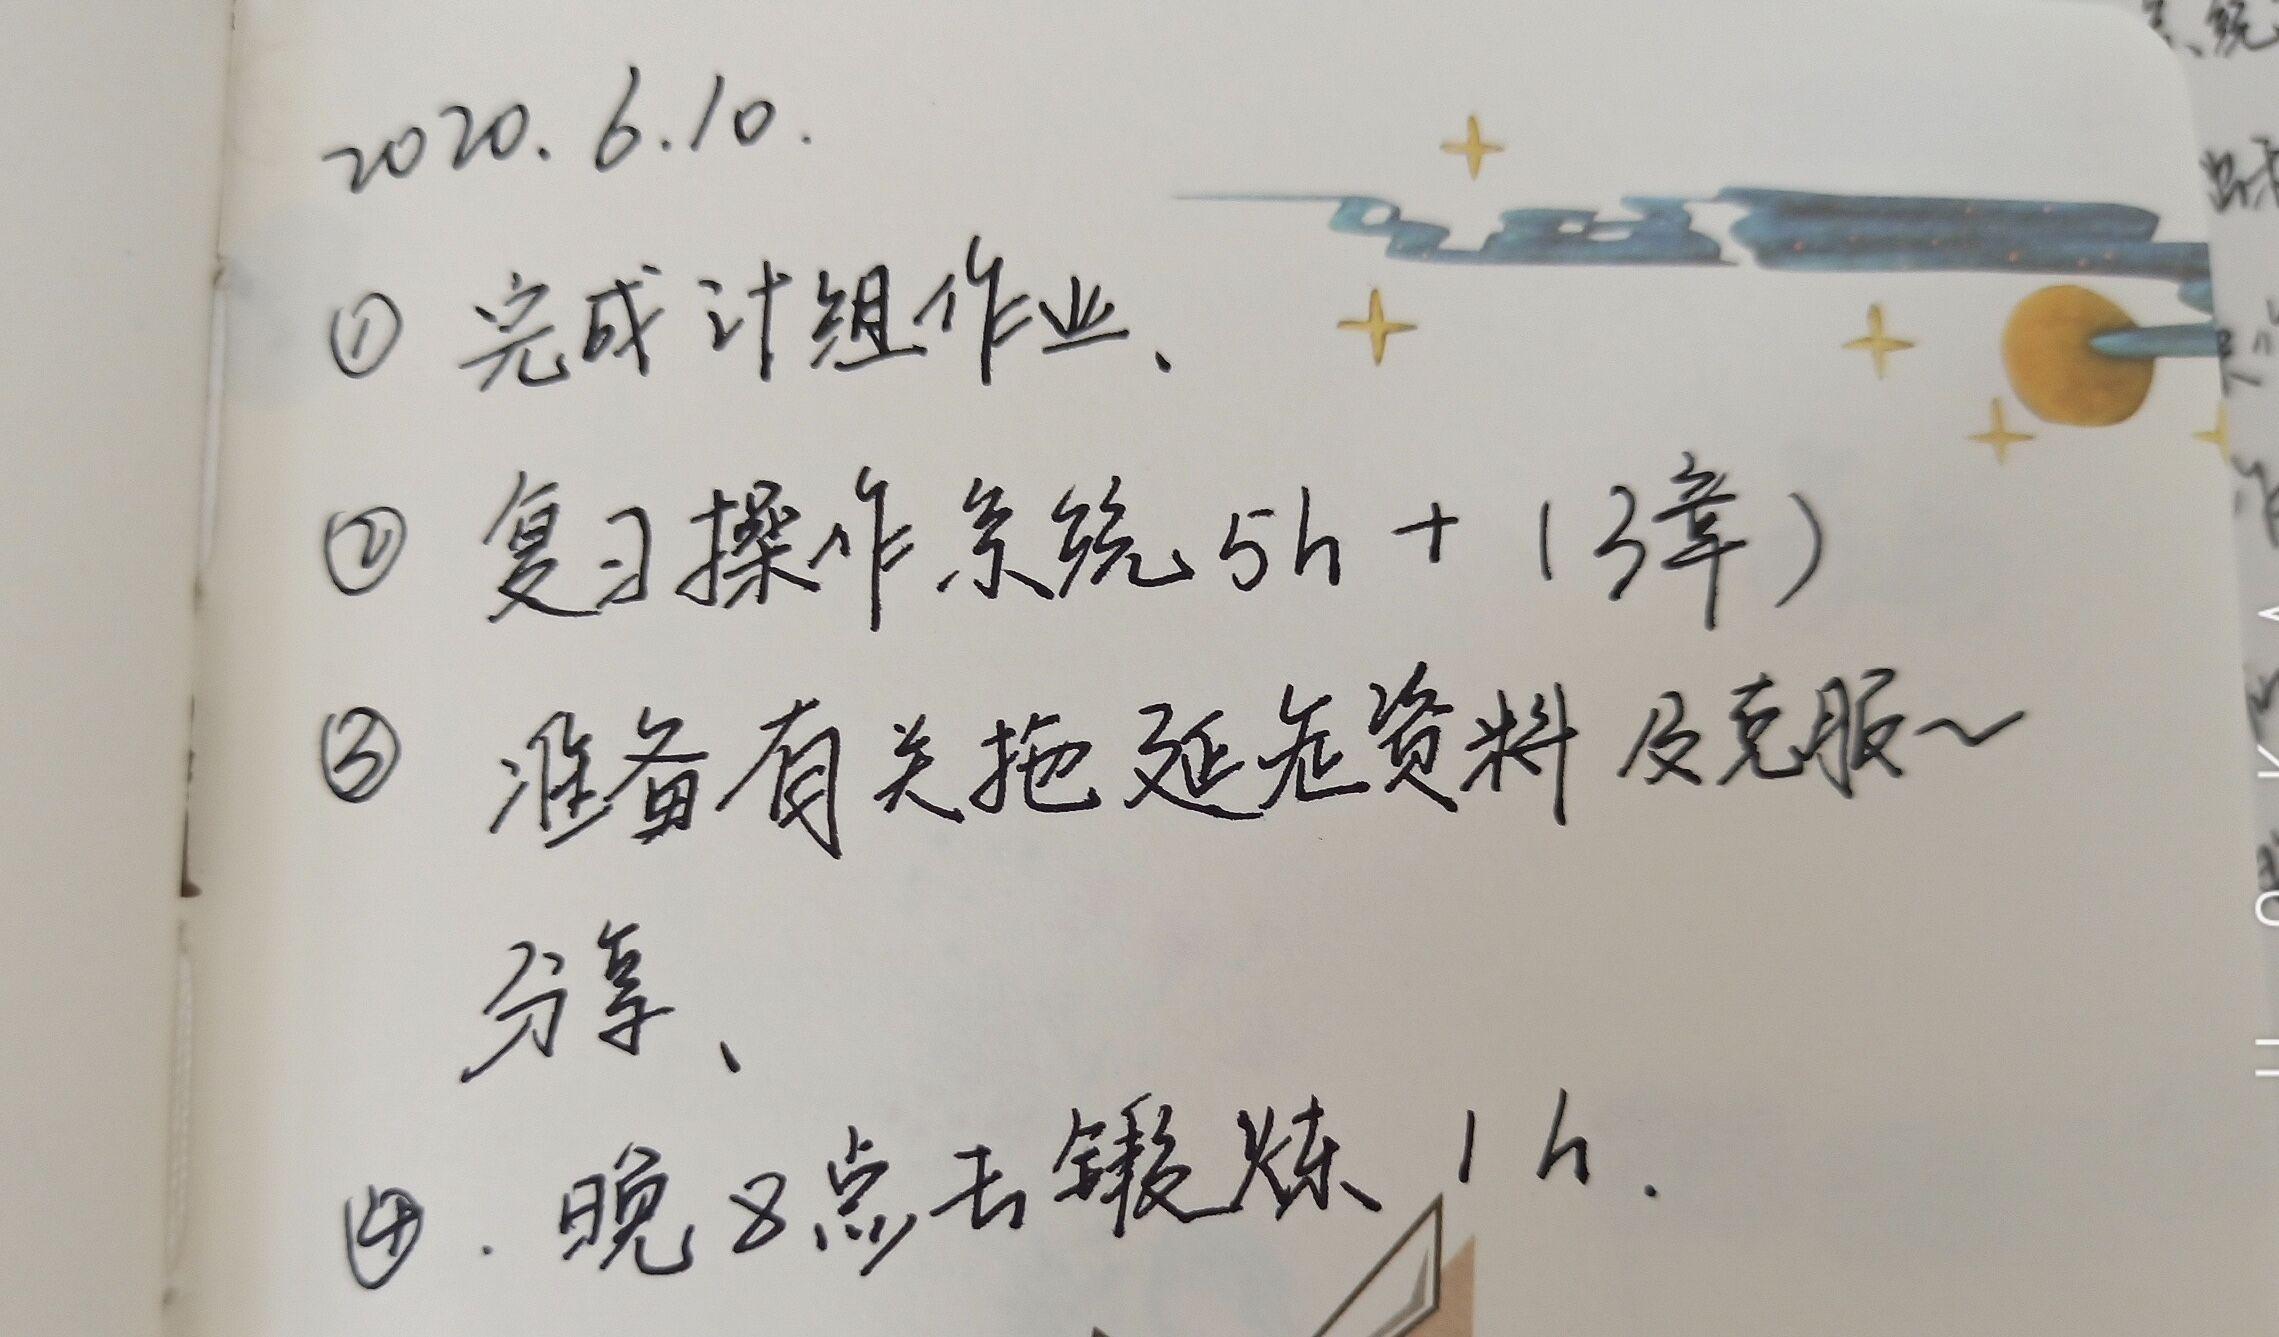 2020.6.10.
① 完成计组作业、
② 复习操作系统5h+(3章)
③ 准备有关拖延症资料及克服~
分享、
④.晚8点去锻炼1h.
系统